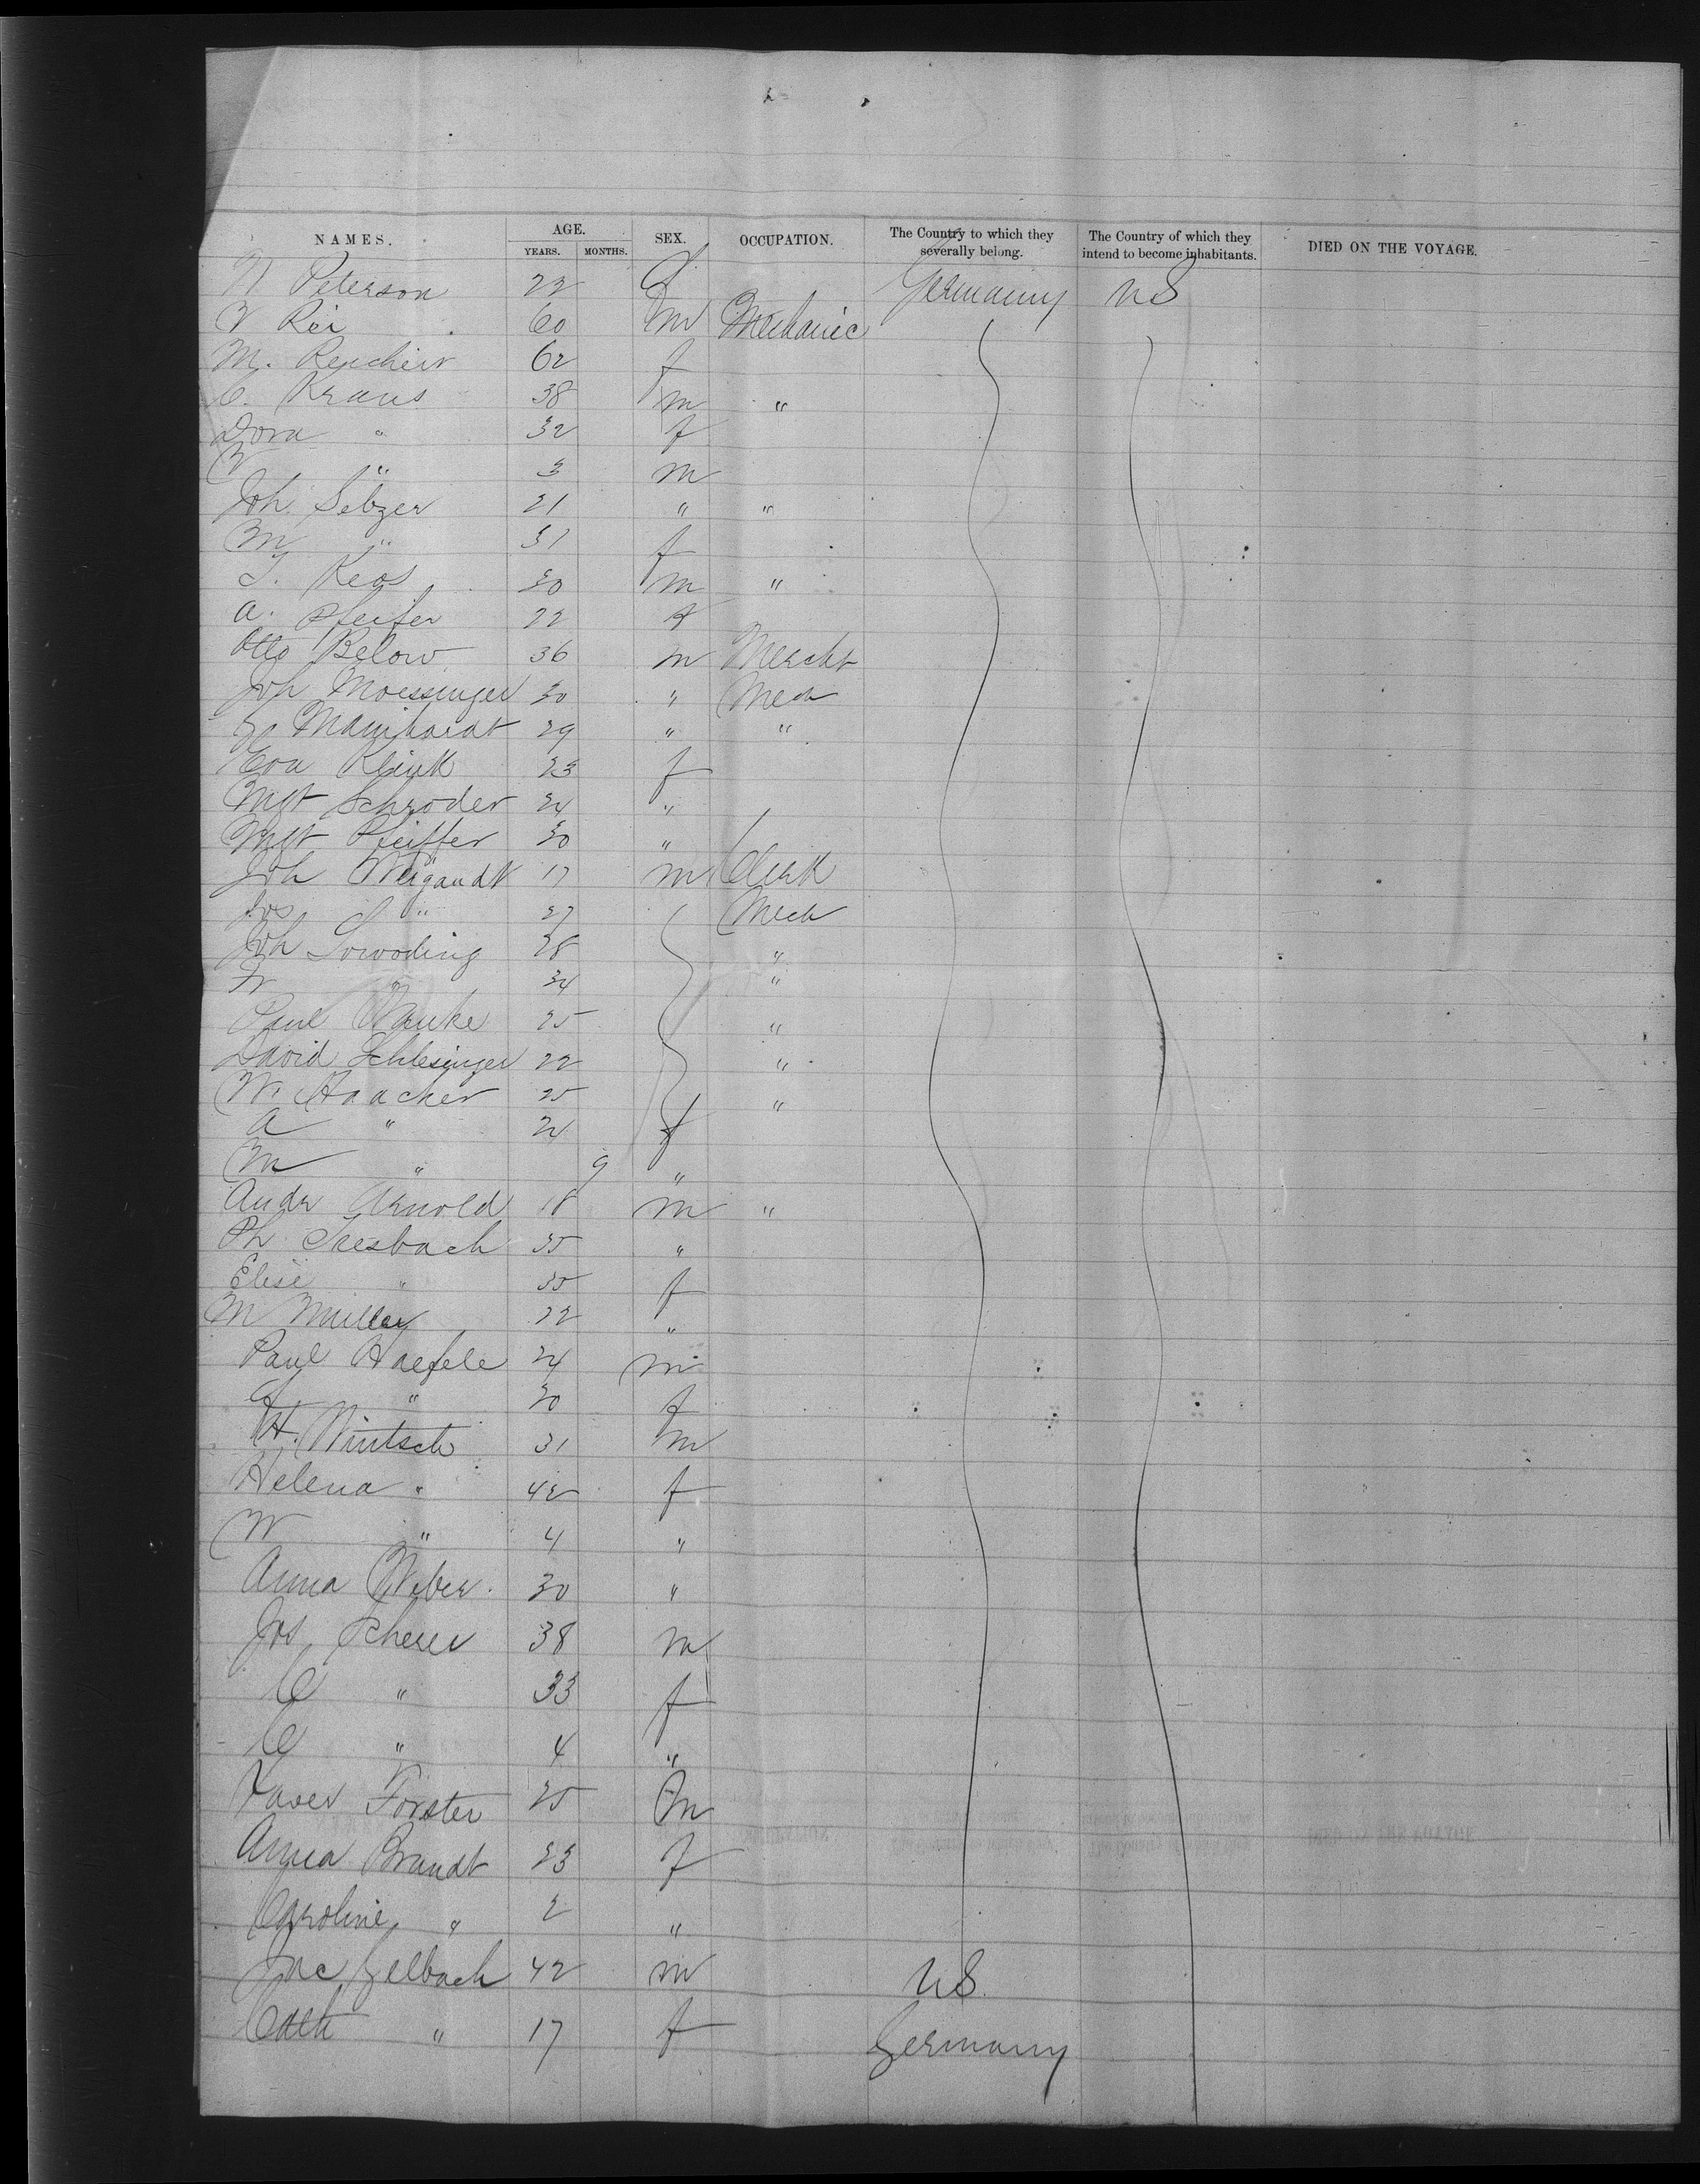 NAMES. AGE. SEX. OCCUPATION. The Country to which they severally belong. The Country of which they intend to become inhabitants. DIED ON THE VOYAGE.
YEARS. MONTHS.
N Peterson 22 f Germany US
60 m Mechanic
M. 62 f
C. Kraus 38 m "
Dora " 32 f
" 3 m
Joh. Selzer 21 " "
M " 31 f
30 m "
A. Pfeifer 22 f
Otto Below 36 m Mercht
Joh Moessinger 30 " Mech
Mainhardt 29 " "
Eva Klink 23 f
Mgt Schroder 24 "
Mgt Pfeiffer 30 "
Joh Weigandt 17 m Clerk
Jos " 27 Mech
Joh 28 "
34 "
Paul 25 "
David Schlesinger 22 "
W. Haacker 25 "
A " 24 f
M " 9 "
Andr Arnold 18 m "
Ph. 35 "
Elise " 35 f
M 22 "
Paul Haefele 24 m
" 30 f
H. Wintsch 31 m
Helena " 42 f
W " 4 "
Anna Weber 30 "
Jos Scherer 38 m
C " 33 f
C " 4 "
Xaver Forster 25 m
Anna Brandt 23 f
Caroline " 2 "
Jac Gelbach 42 m US
Cath " 17 f Germany